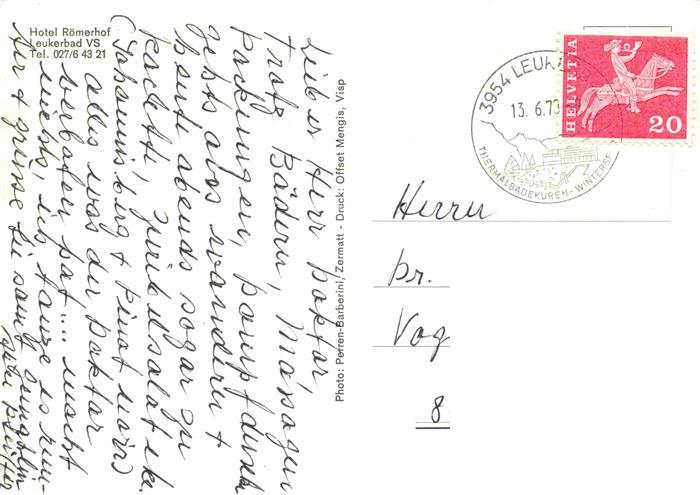 Hotel Römerhof
Leukerbad VS
Tel. 027/6 43 21
Lieber Herr Doktor,
trotz Bädern, Massagen
Packungen, Dampfdusch
gehts ans wandern +
heute abends sogar zu
Raclette, Zwiebelsalat etc.
(Johannisberg + Pinot noir)
alles was der Doktor
verboten hat... macht
nichts, ich
+ grüsse Sie samt
Photo: Perren-Barberini, Zermatt - Druck: Offset Mengis, Visp
3954 LEUK
13. 6.73
THERMALBADEKUREN-WINTERSP
HELVETIA
20
Herrn
Dr.
Vog
8